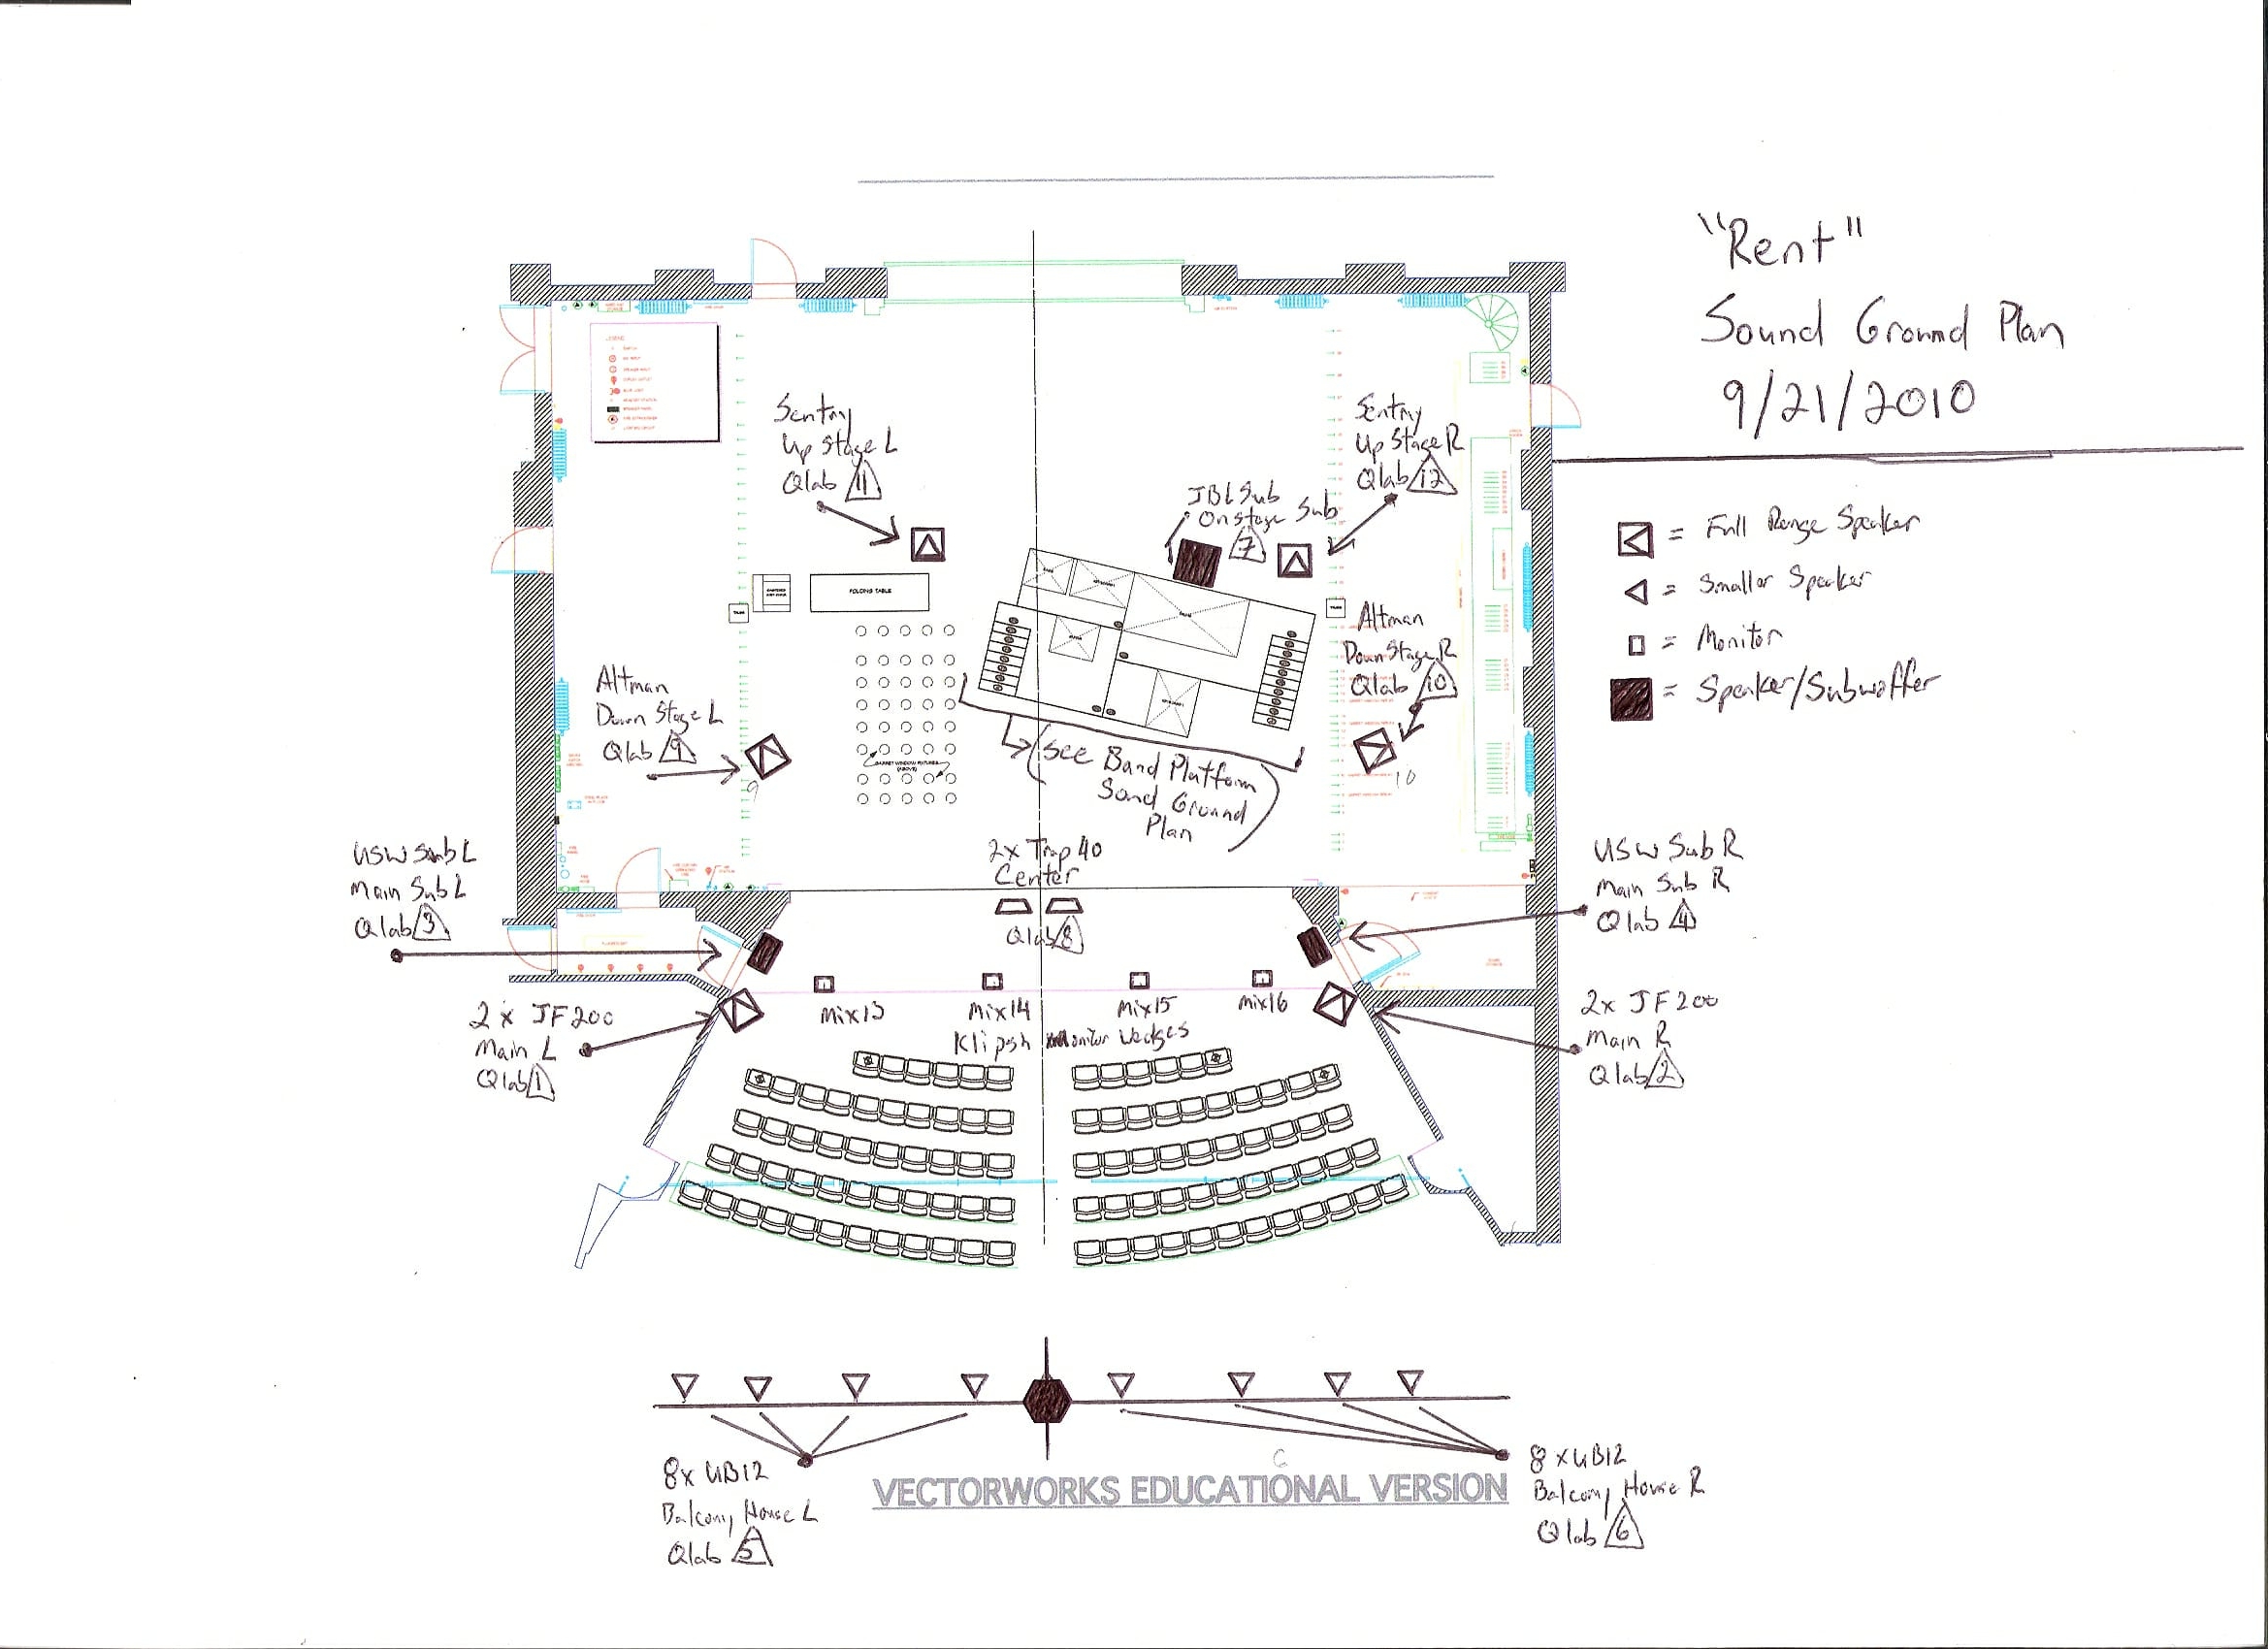 "Rent"
Sound Ground Plan
9/21/2010
= Full Range Speaker
= Smaller Speaker
= Monitor
= Speaker/Subwoffer
LEGEND
Sentry
Up Stage L
Qlab 11
Sentry
Up Stage R
Qlab 12
JBL Sub
On stage Sub
7
FOLDING TABLE
Altman
Down Stage L
Qlab 9
9
Altman
Down Stage R
Qlab 10
10
GARRET WINDOW FIXTURES
(ABOVE)
(See Band Platform
Sound Ground
Plan)
USW Sub L
Main Sub L
Qlab 3
2x Trap 40
Center
Qlab 8
USW Sub R
Main Sub R
Qlab 4
2x JF200
Main L
Qlab 1
Mix13
Mix14
Mix15
Mix16
Klipsh Monitor Wedges
2x JF200
Main R
Qlab 2
8x UB12
Balcony House L
Qlab 5
VECTORWORKS EDUCATIONAL VERSION
6
8xUB12
Balcony House R
Qlab 6